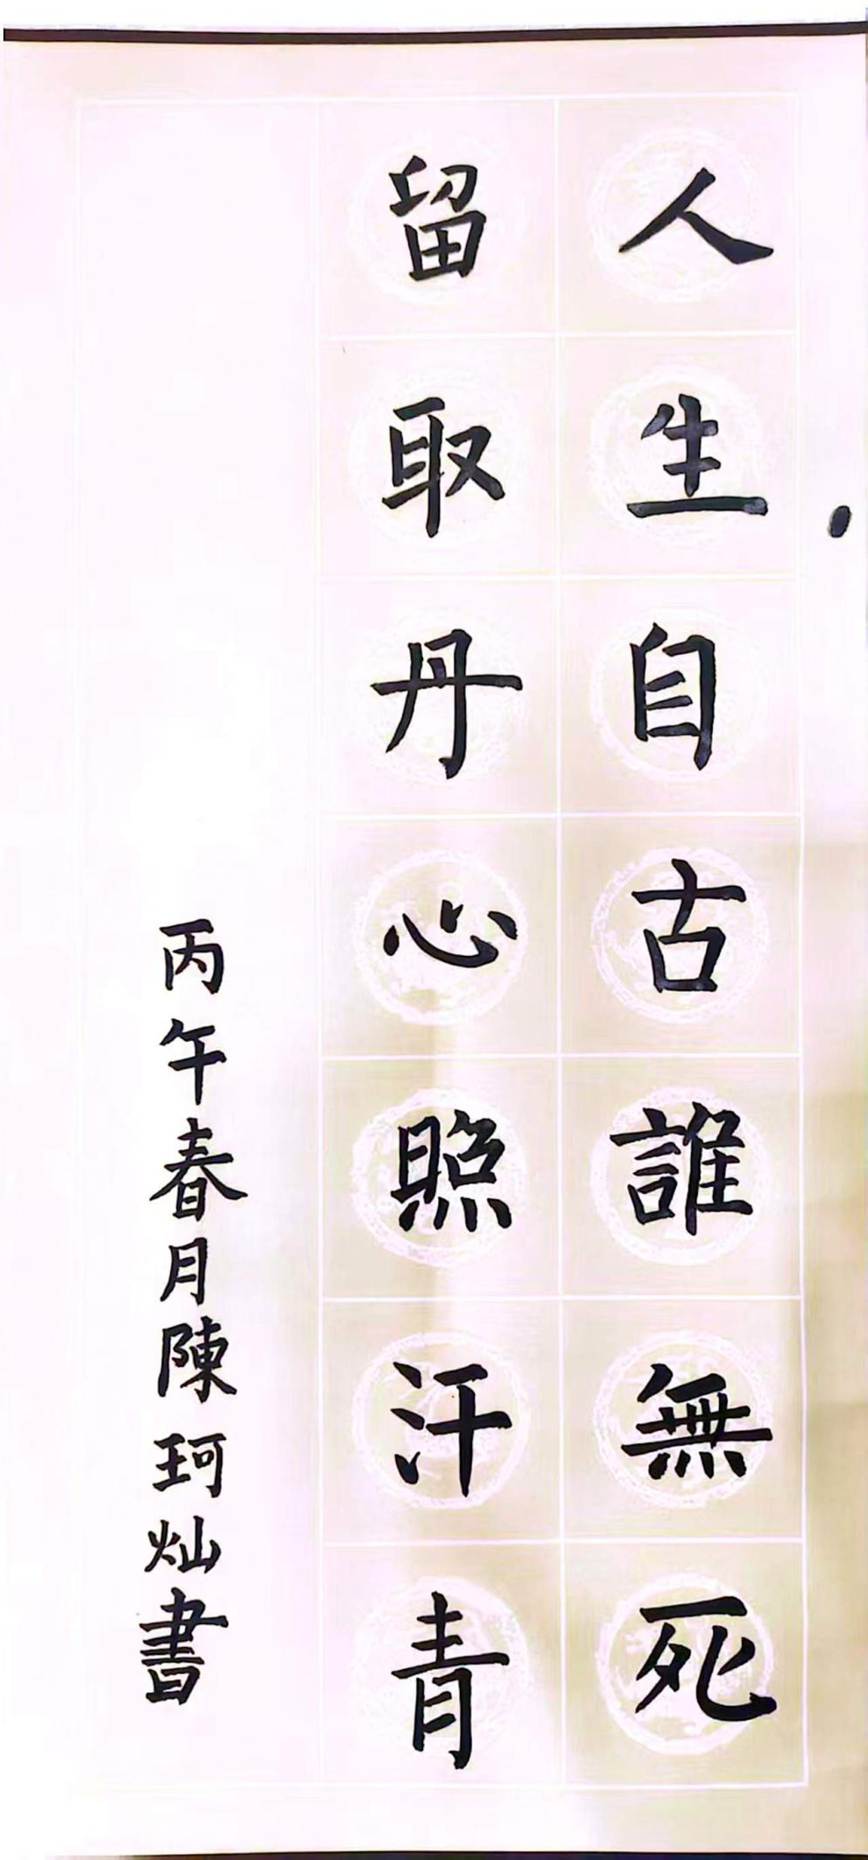 人生自古誰無死
留取丹心照汗青
丙午春月陳珂灿書